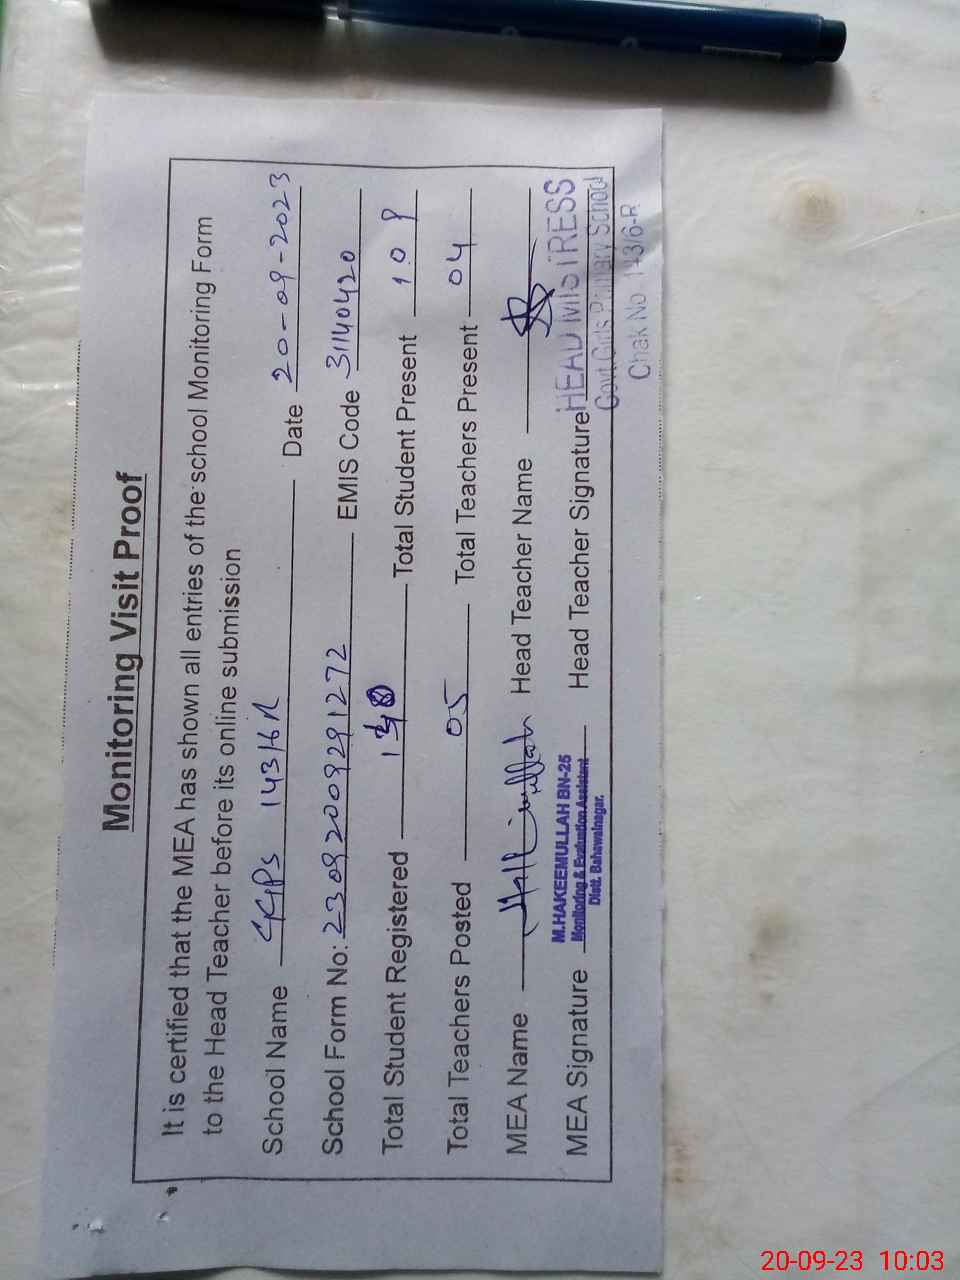 Monitoring Visit Proof
It is certified that the MEA has shown all entries of the school Monitoring Form
to the Head Teacher before its online submission
School Name GGPS 143/6R Date 20-09-2023
School Form No: 23092009291272 EMIS Code 31140420
Total Student Registered Total Student Present 109
Total Teachers Posted 05 Total Teachers Present 04
MEA Name Head Teacher Name
MEA Signature Head Teacher Signature
M.HAKEEMULLAH BN-25
Monitoring & Evaluation Assistant
Distt. Bahawalnagar.
HEAD MISTRESS
Govt. Girls Primary School
Chak No. 143/6-R
20-09-23 10:03